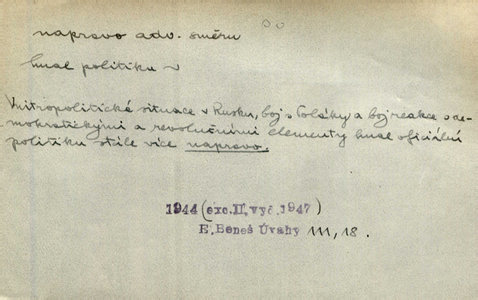 napravo adv. směru
hnal politiku v
Vnitropolitické situace v Rusku, boj s Poláky a boj reakce s de-
mokratickými a revolučními elementy hnal oficiální
politiku stále více napravo.
1944 (exc. II, vyč. 1947)
E. Beneš Úvahy III, 18.